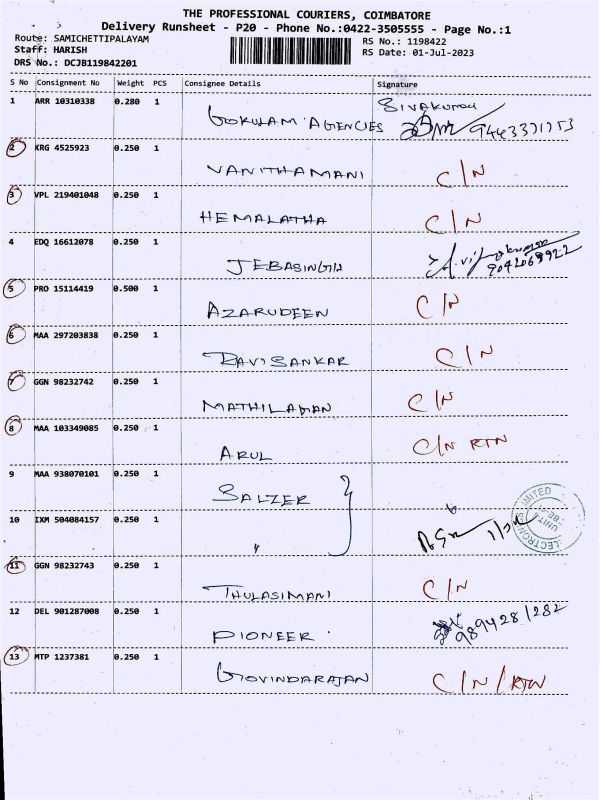 THE PROFESSIONAL COURIERS, COIMBATORE
Delivery Runsheet - P20 - Phone No.:0422-3505555 - Page No.:1
Route: SAMICHETTIPALAYAM RS No.: 1198422
Staff: HARISH RS Date: 01-Jul-2023
DRS No.: DCJB119842201
S No Consignment No Weight PCS Consignee Details Signature
1 ARR 10310338 0.280 1 SIVAKUMAR
GOKULAM AGENCIES 9443371753
2 KRG 4525923 0.250 1
VANITHAMANI C/N
3 VPL 219401048 0.250 1
HEMALATHA C/N
4 EDQ 16612078 0.250 1
JEBASINGH 9042069922
5 PRO 15114419 0.500 1
AZARUDEEN C/N
6 MAA 297203838 0.250 1
RAVISANKAR C/N
7 GGN 98232742 0.250 1
MATHILAGAN C/N
8 MAA 103349085 0.250 1
ARUL C/N RTN
9 MAA 938070101 0.250 1
SALZER
10 IXM 504084157 0.250 1
"
11 GGN 98232743 0.250 1
THULASIMANI C/N
12 DEL 901287008 0.250 1
PIONEER 9894281282
13 MTP 1237381 0.250 1
GOVINDARAJAN C/N/RTN